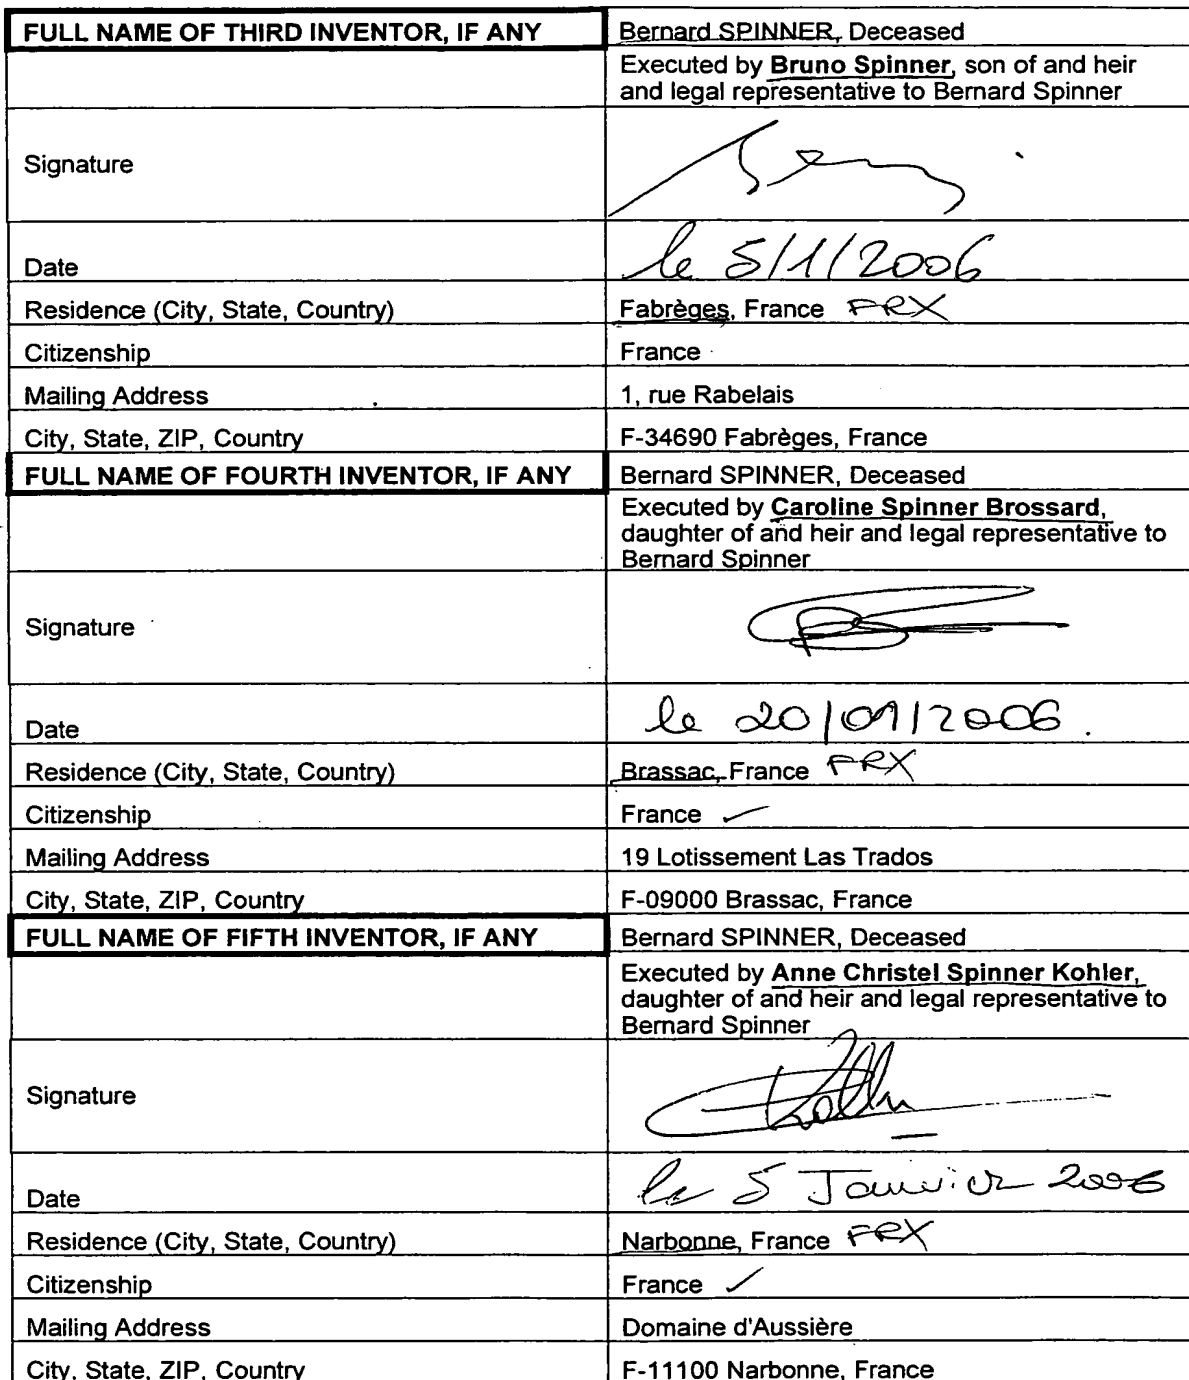 FULL NAME OF THIRD INVENTOR, IF ANY Bernard SPINNER, Deceased
Executed by Bruno Spinner, son of and heir
and legal representative to Bernard Spinner
Signature
Date le 5/1/2006
Residence (City, State, Country) Fabrèges, France FRX
Citizenship France
Mailing Address 1, rue Rabelais
City, State, ZIP, Country F-34690 Fabrèges, France
FULL NAME OF FOURTH INVENTOR, IF ANY Bernard SPINNER, Deceased
Executed by Caroline Spinner Brossard,
daughter of and heir and legal representative to
Bernard Spinner
Signature
Date le 20/01/2006.
Residence (City, State, Country) Brassac, France FRX
Citizenship France ✓
Mailing Address 19 Lotissement Las Trados
City, State, ZIP, Country F-09000 Brassac, France
FULL NAME OF FIFTH INVENTOR, IF ANY Bernard SPINNER, Deceased
Executed by Anne Christel Spinner Kohler,
daughter of and heir and legal representative to
Bernard Spinner
Signature
Date le 5 Janvier 2006
Residence (City, State, Country) Narbonne, France FRX
Citizenship France ✓
Mailing Address Domaine d'Aussière
City, State, ZIP, Country F-11100 Narbonne, France